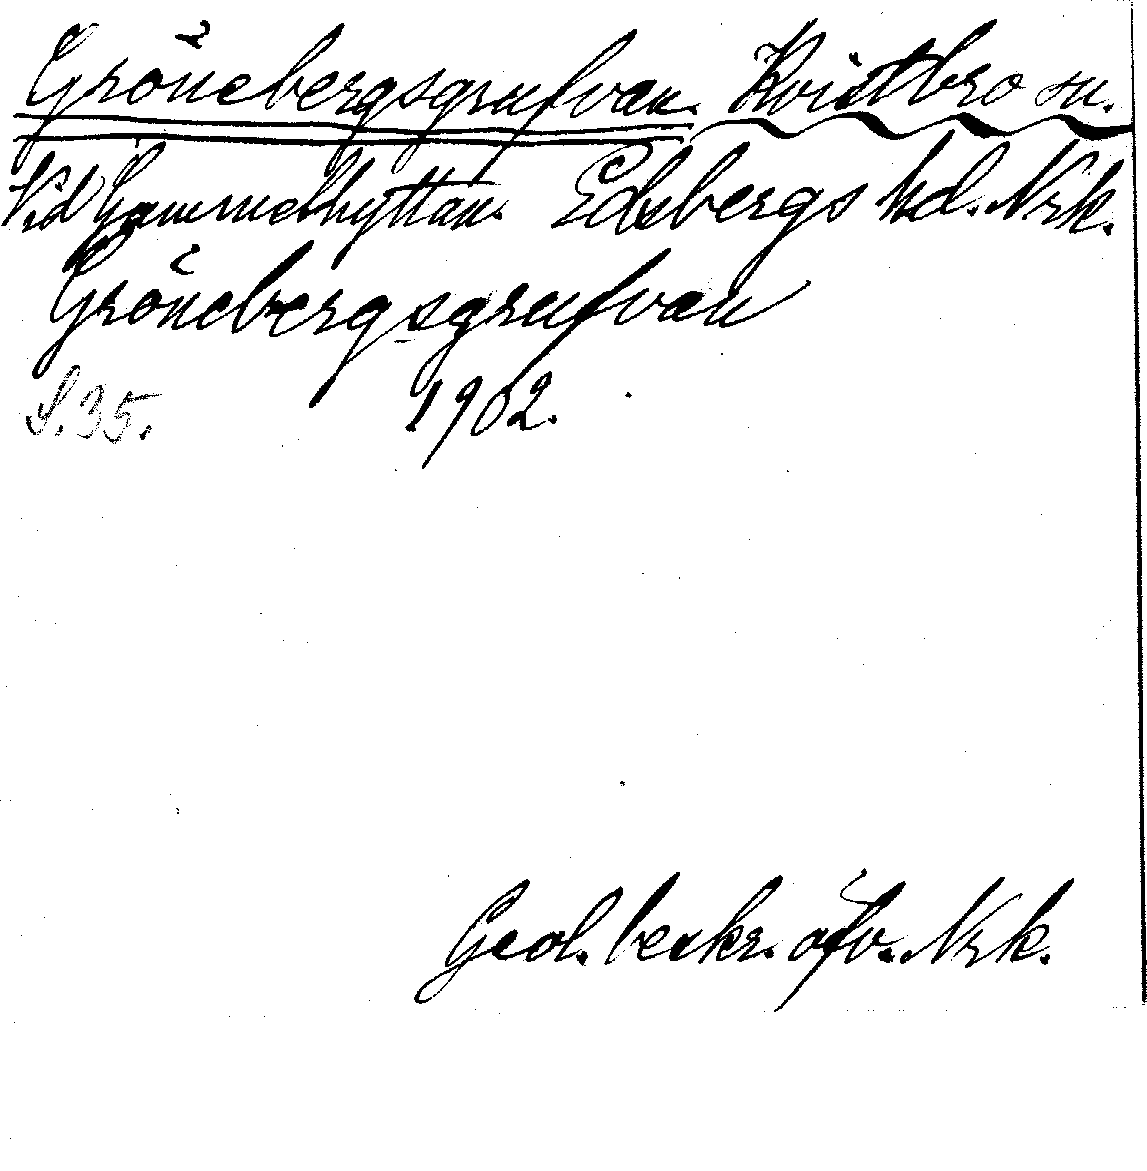 Grönebergsgrufvan. Kvistbro sn.
Vid Gammelhyttan. Edsbergs hd. Nrk.
Grönebergsgrufvan
S. 35. 1902.
Geol. beskr. öfv. Nrk.